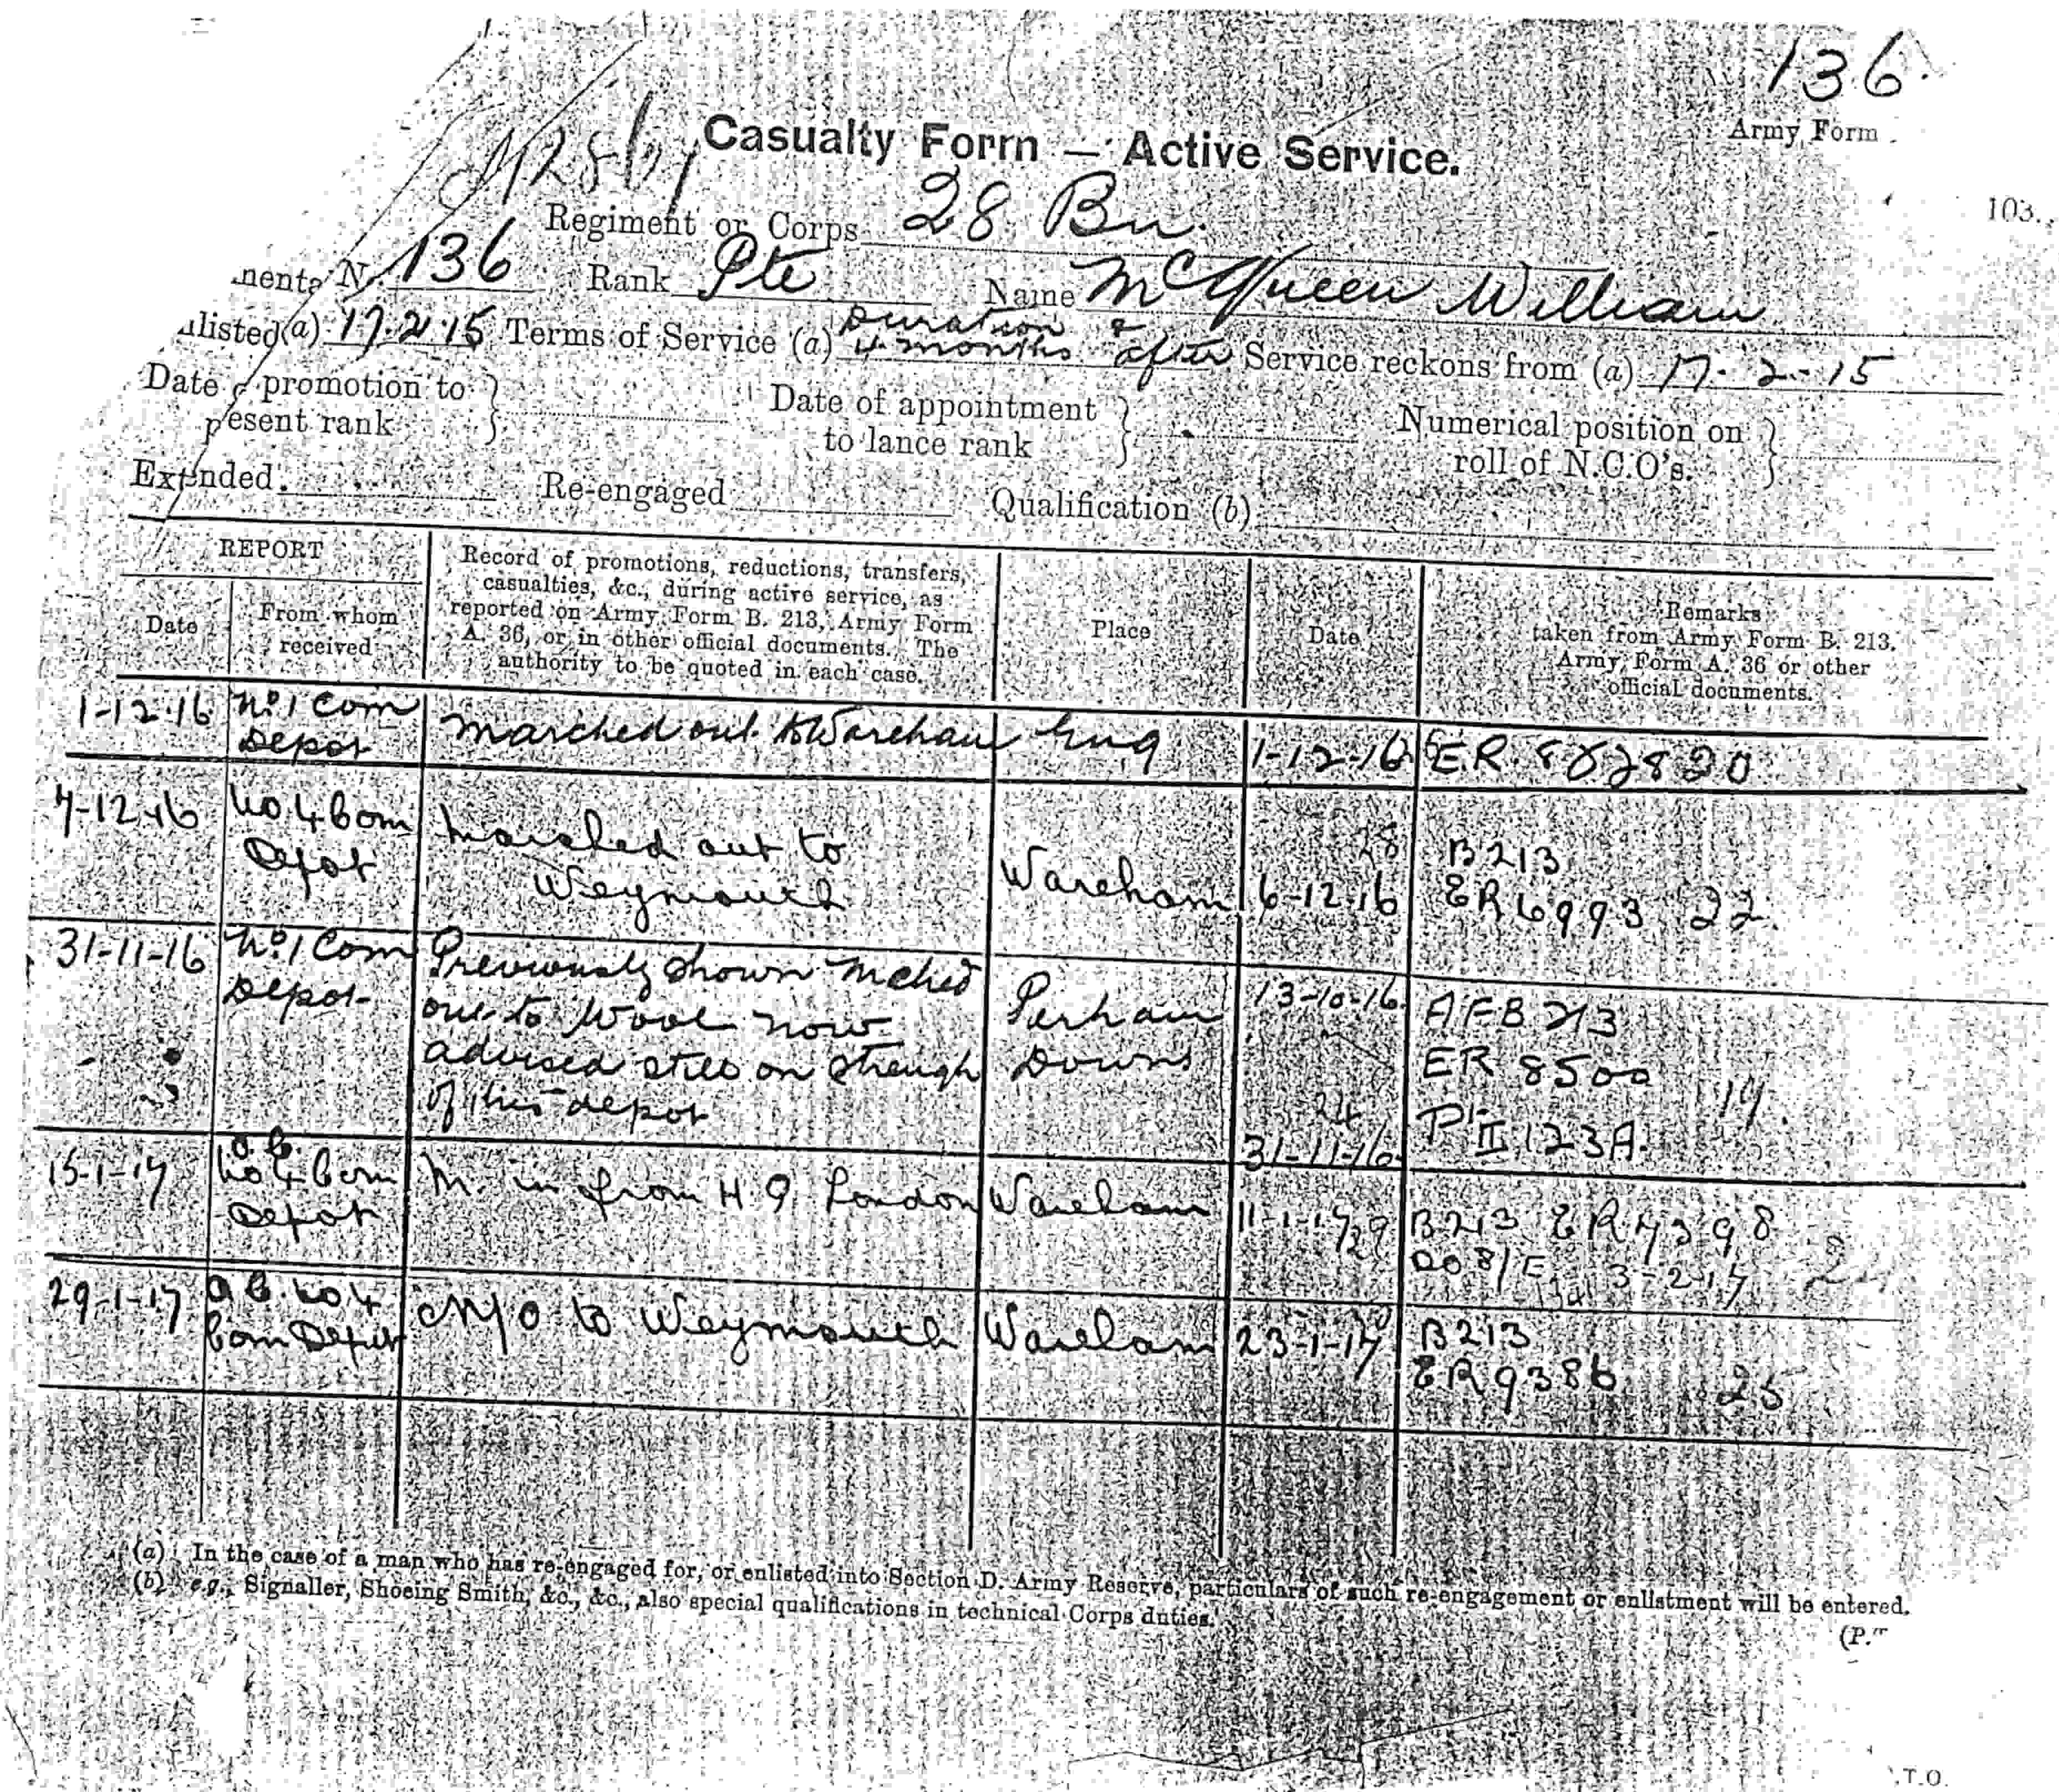 136.
Army Form
Casualty Form — Active Service.
103.
Regiment or Corps 28 Bn.
N. 136 Rank Pte Name McQueen William
listed (a) 17.2.15 Terms of Service (a) Duration & 4 months after Service reckons from (a) 17-2-15
Date of promotion to present rank } Date of appointment to lance rank } Numerical position on roll of N.C.O's. }
Extended Re-engaged Qualification (b)
REPORT
Date
From whom received
Record of promotions, reductions, transfers,
casualties, &c., during active service, as
reported on Army Form B. 213, Army Form
A. 36, or in other official documents. The
authority to be quoted in each case.
Place
Date
Remarks
taken from Army Form B. 213,
Army Form A. 36 or other
official documents.
1-12-16 No. 1 Com Depot Marched out to Wareham Eng 1-12-16 ER
7-12-16 No 4 Com Depot Marched out to Weymouth Wareham 28 6-12-16 B213 ER 6993 22.
31-11-16 No. 1 Com Depot Previously shown mched out to Wool now advised still on strength of this depot Perham Downs 13-10-16 24 31-11-16 AFB 213 ER 8500 PII 123A. 14.
15-1-17 No 4 Com Depot M. in from HQ London Wareham 11-1-17 29 B213 ER 7398 DO 8/E 3-2-17
29-1-17 No 4 Com Depot M/O to Weymouth Wareham 23-1-17 B213 ER 9386 25
(a) In the case of a man who has re-engaged for, or enlisted into Section D. Army Reserve, particulars of such re-engagement or enlistment will be entered.
(b) e.g., Signaller, Shoeing Smith, &c., &c., also special qualifications in technical Corps duties.
(P.
T.O.